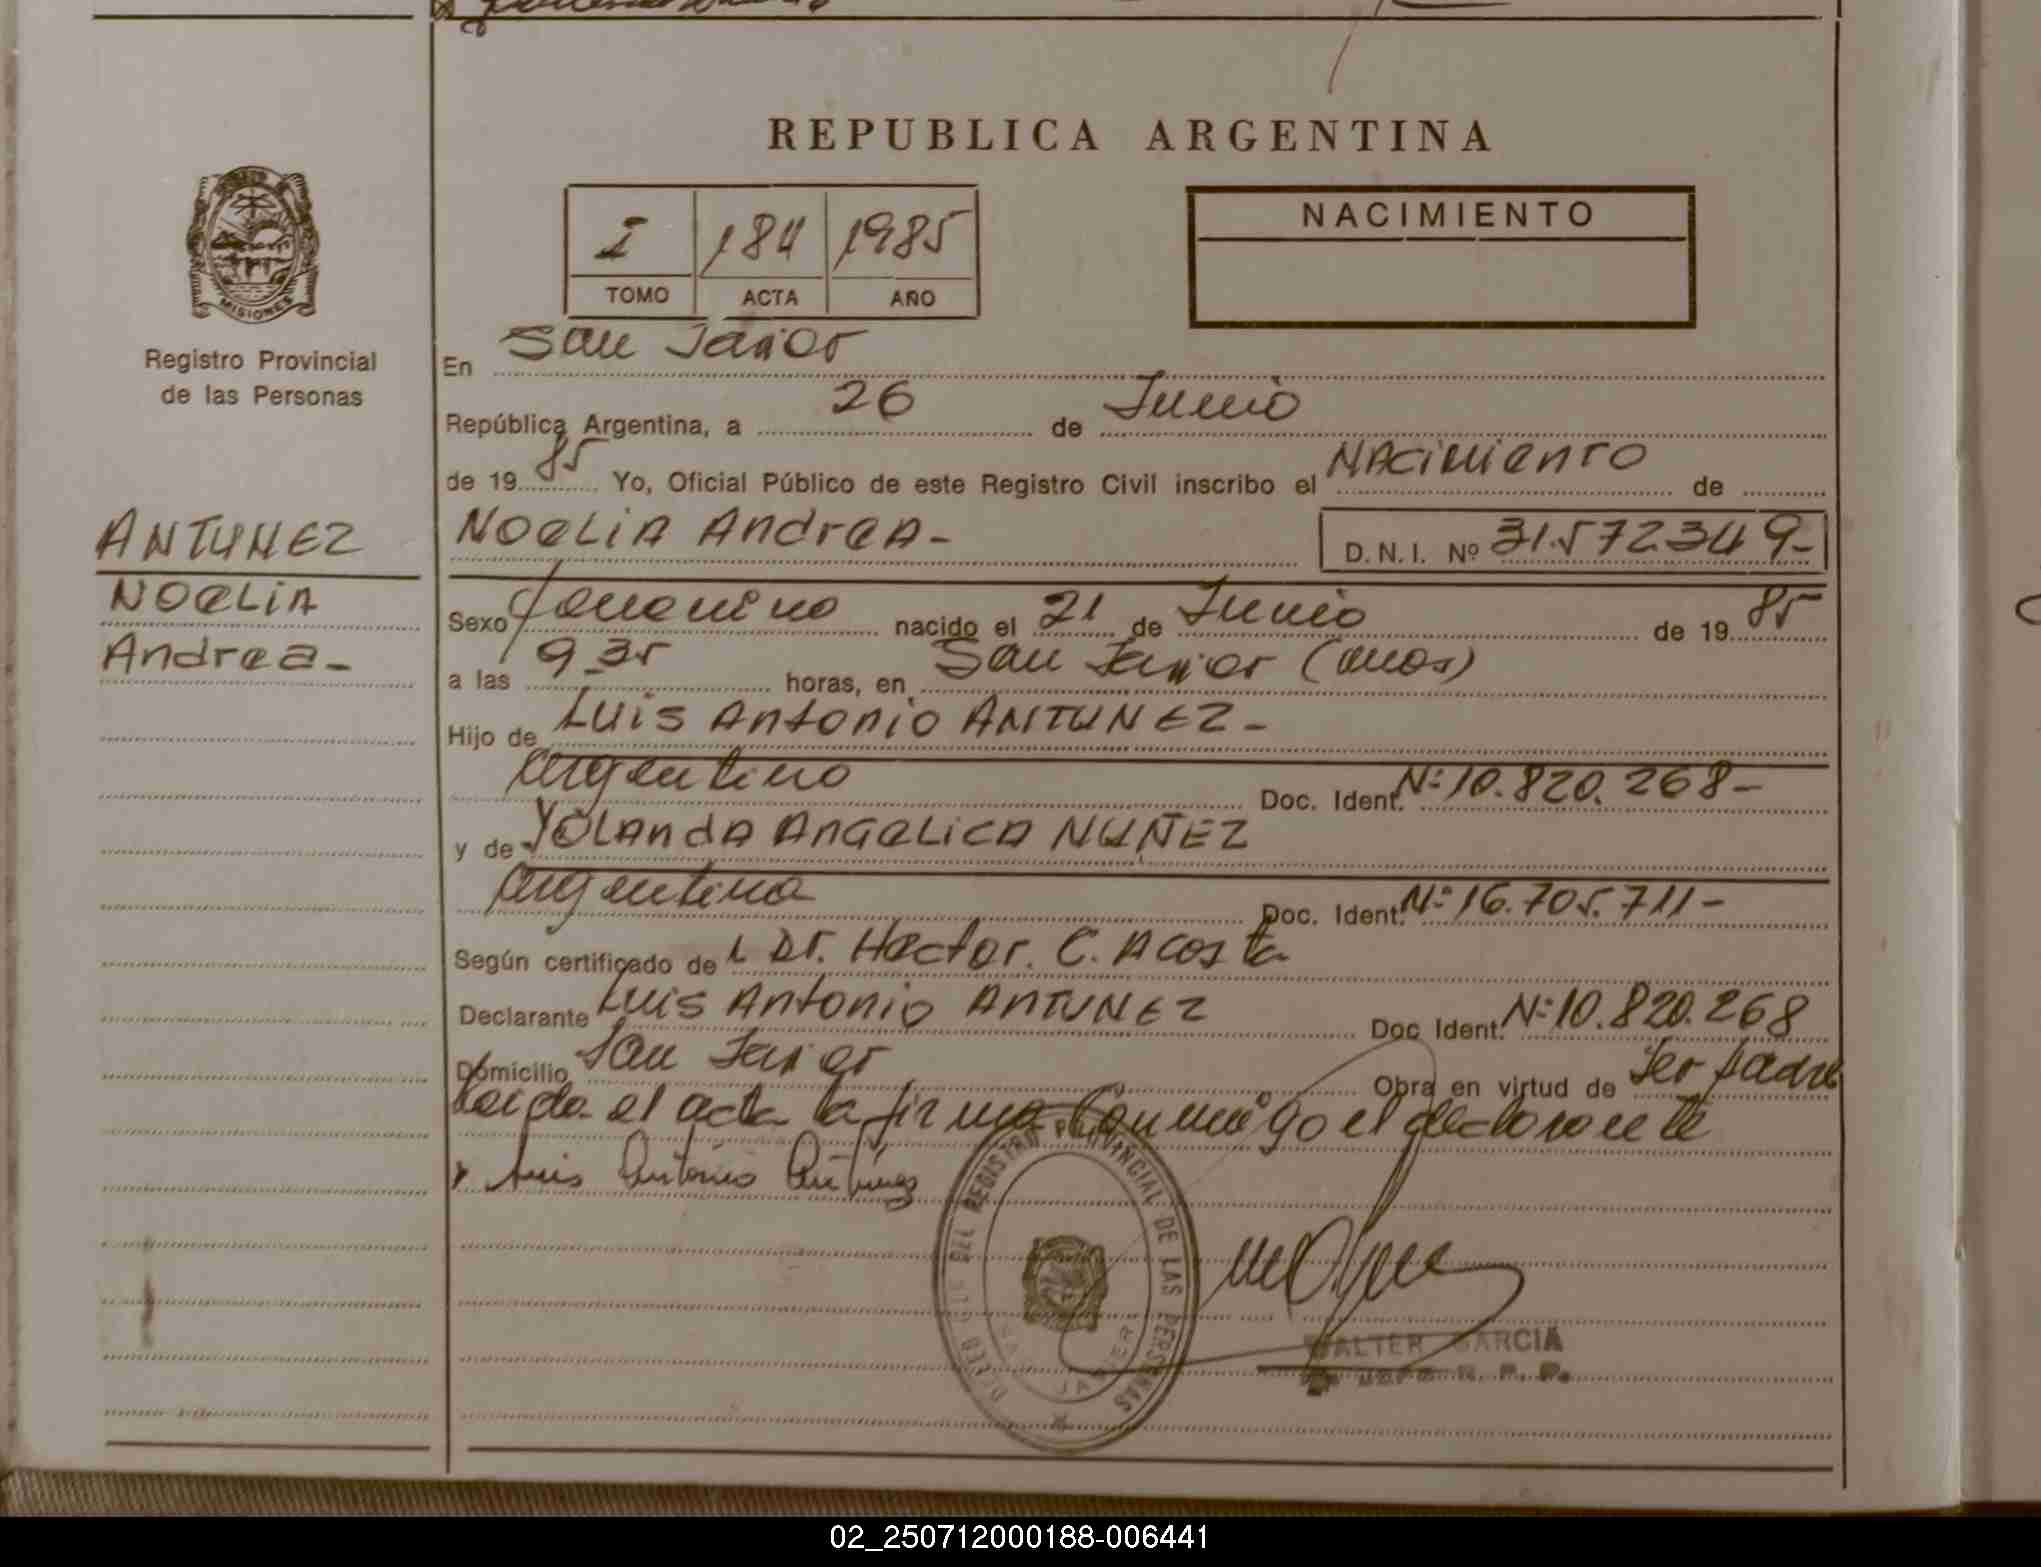 REPUBLICA ARGENTINA
MISIONES
Registro Provincial
de las Personas
I 184 1985
TOMO ACTA AÑO
NACIMIENTO
En San Javier
República Argentina, a 26 de Junio
de 1985 Yo, Oficial Público de este Registro Civil inscribo el NACimiento de
ANTUNEZ
NOELIA
Andrea-
NOELIA AndreA- D.N.I. Nº 31.572349-
Sexo femenino nacido el 21 de Junio de 1985
a las 9-35 horas, en San Javier
Hijo de Luis Antonio ANTUNEZ-
argentino Doc. Ident. Nº 10.820.268-
y de YOLANdA ANGELICA NUÑEZ
argentina Doc. Ident. Nº 16.705.711-
Según certificado de Dr. Hector. C. Acosta
Declarante Luis Antonio ANTUNEZ Doc Ident. Nº 10.820.268
Domicilio San Javier Obra en virtud de Ser padre
Leida el acta la firma conmigo el declarante
Luis Antonio Antúnez
DEL REGISTRO PROVINCIAL DE LAS PERSONAS
JAVIER
WALTER GARCIA
JEFE R. P. P.
02_250712000188-006441